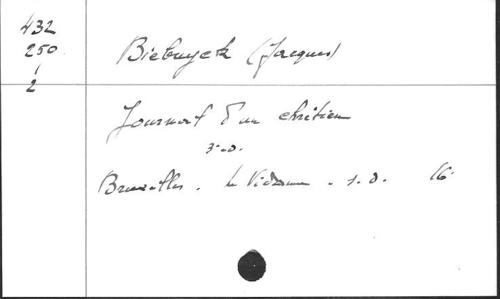 432
250
1
2
Biebuyck (Jacques)
Journal d'un chrétien
s.d.
Bruxelles. Le Vidame. s.d. 16°